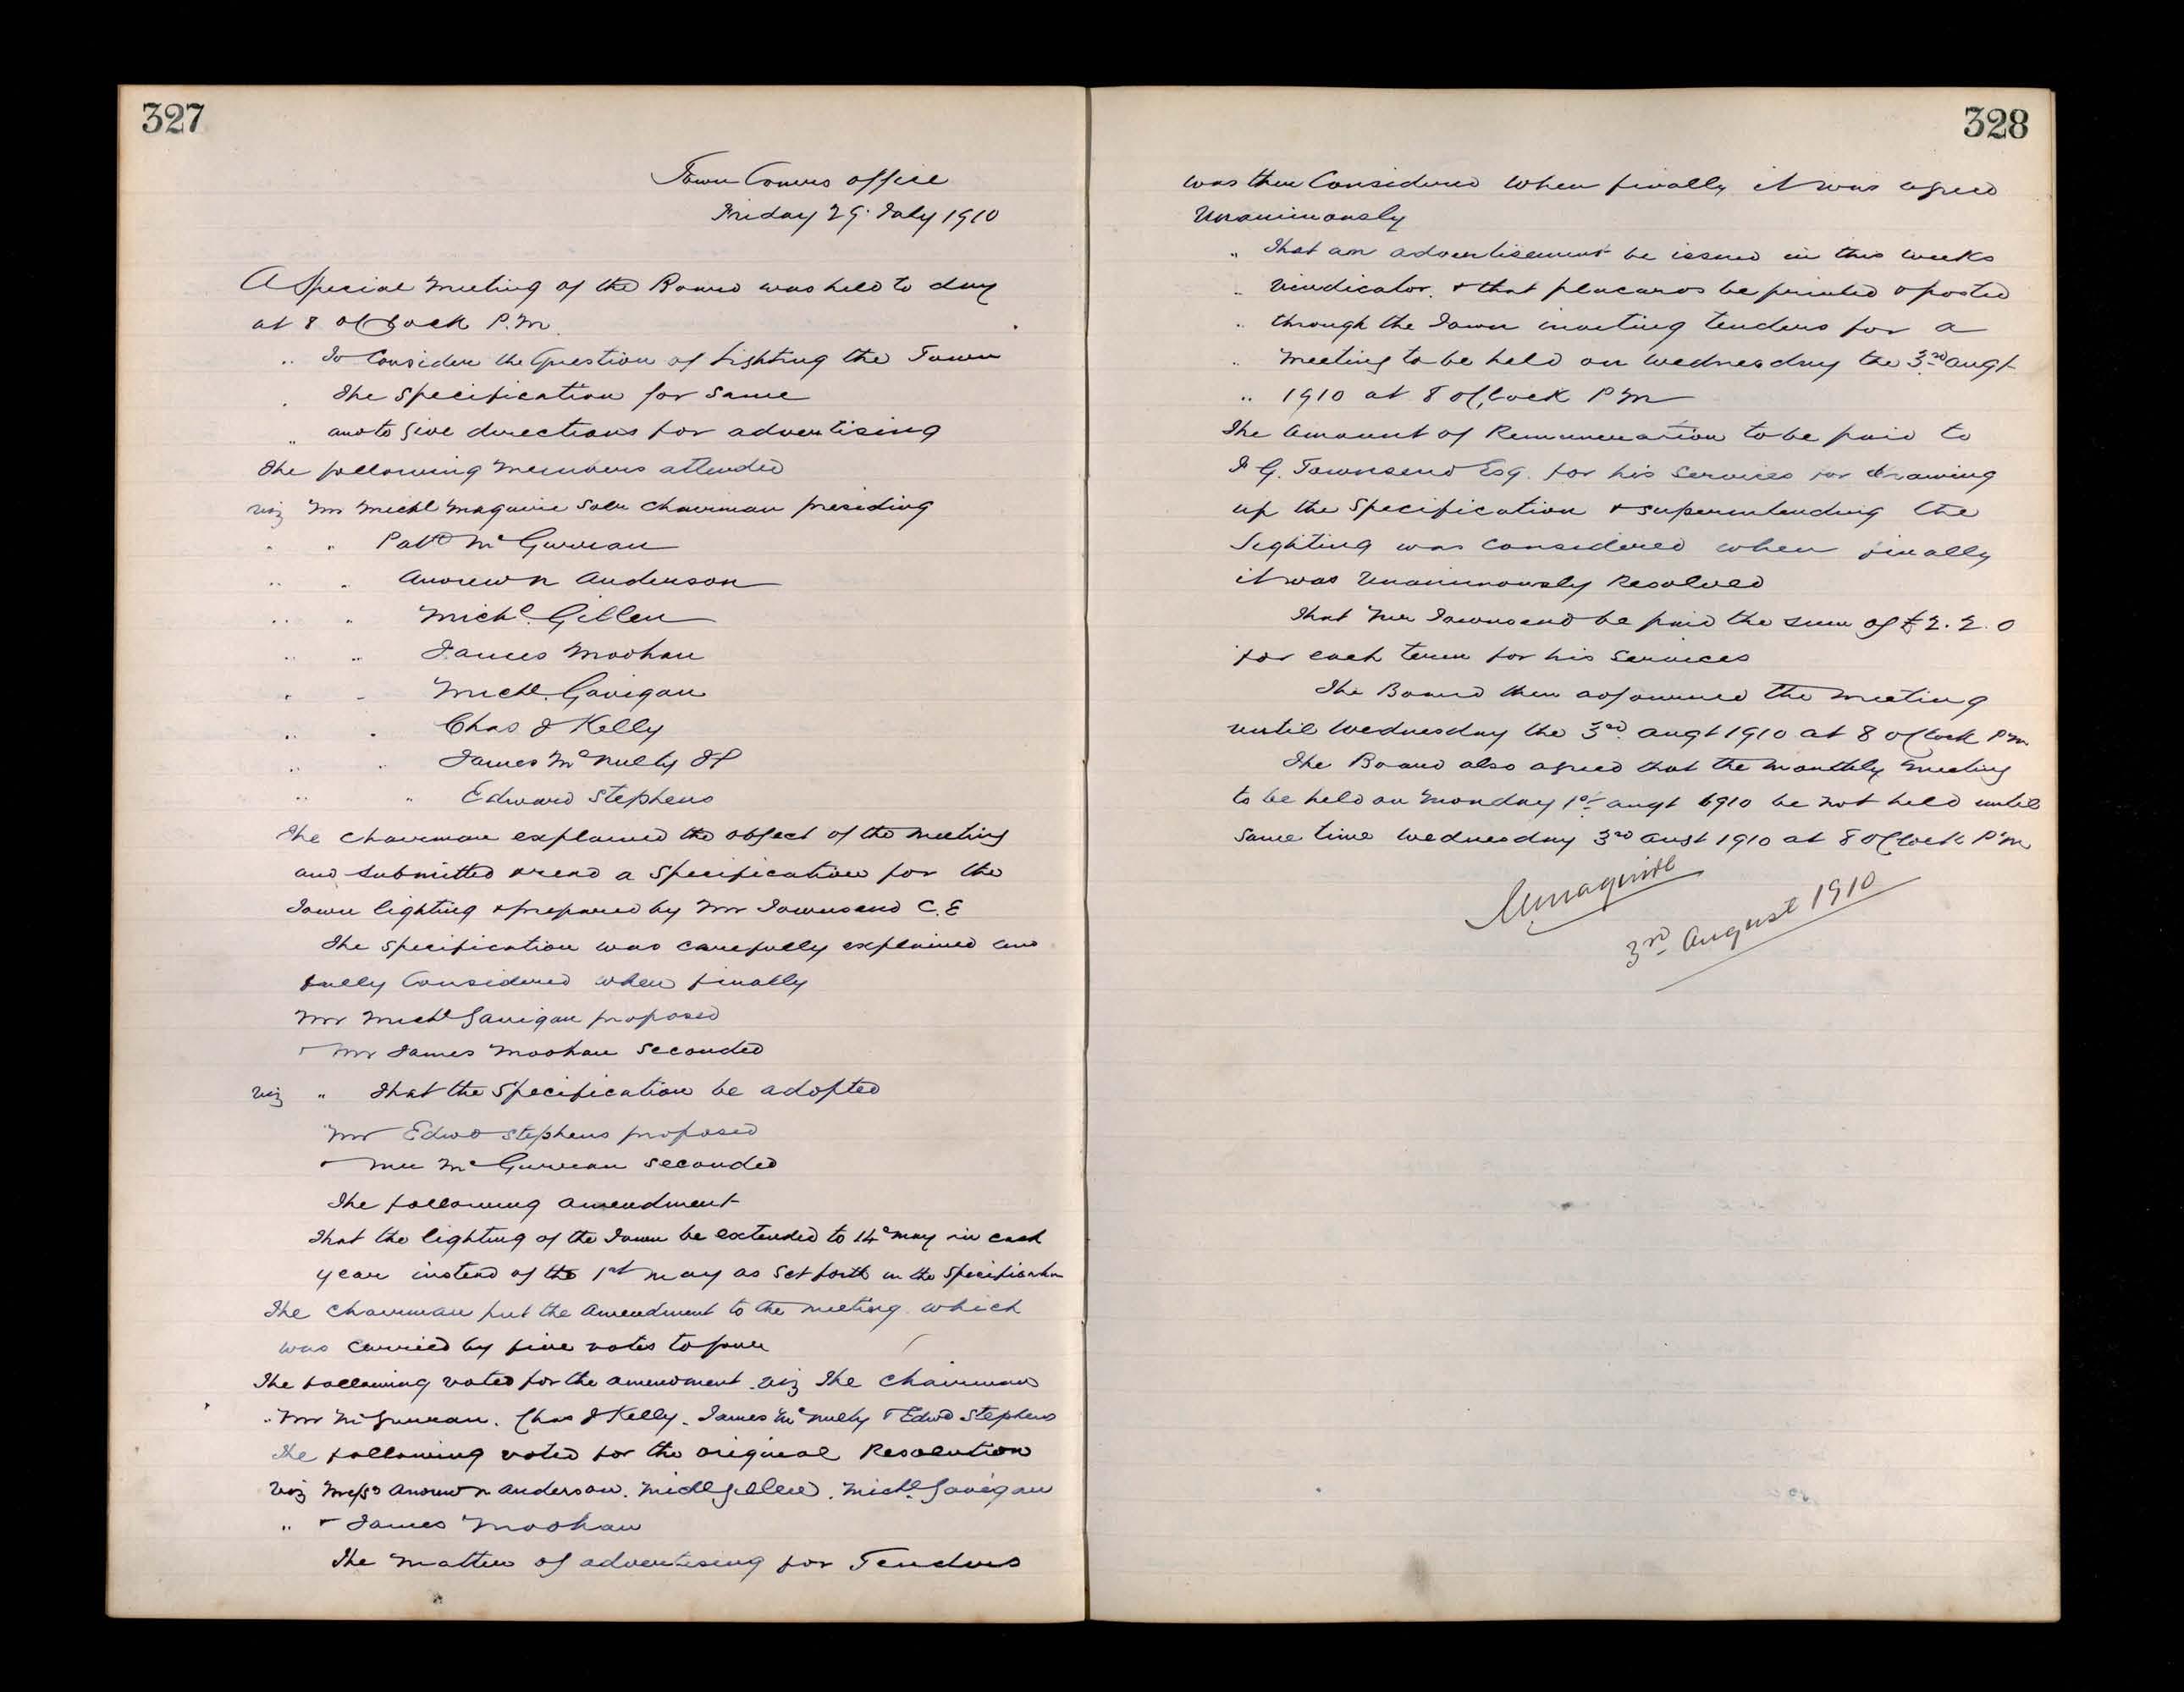 327
Town Comrs office
Friday 29. July 1910
A Special Meeting of the Board was held to day
at 8 oClock P.M.
.. To Consider the Question of Lighting the Town
. The Specification for Same
„ and to give directions for advertising
The following Members attended
viz Mr Michl Maguire Solr Chairman presiding
„ „ Patk McGurran
„ „ Andrew N Anderson
„ „ Michl. Gillen
„ „ James Moohan
„ „ Michl. Gavigan
„ „ Chas J Kelly
„ „ James McNulty JP
„ „ Edward Stephens
The Chairman explained the object of the Meeting
and submitted & read a Specification for the
Town lighting & prepared by Mr Townsend C.E
The Specification was carefully explained and
fully Considered when finally
Mr Michl Gavigan proposed
& Mr James Moohan Seconded
viz „ That the Specification be adopted
Mr Edwd Stephens proposed
& Mr McGurran Seconded
The following amendment
That the lighting of the Town be extended to 14 May in each
year instead of the 1st May as Set forth in the Specification
The Chairman put the Amendment to the meeting which
was Carried by five votes to four
The following voted for the amendment viz The Chairman
„ Mr McGurran. Chas J Kelly. James McNulty & Edwd Stephens
The following voted for the original Resolution
viz Messrs Andrew N Anderson. Michl Gillen. Michl. Gavigan
„ & James Moohan
The Matter of advertising for Tenders
328
was then Considered When finally it was agreed
Unanimously
„ That an advertisement be issued in this weeks
„ Vindicator. & that placards be printed & posted
„ through the Town inviting tenders for a
„ Meeting to be held on Wednesday the 3rd Augt
„ 1910 at 8 oClock PM
The Amount of Remuneration to be paid to
J G. Townsend Esq. for his Services for drawing
up the Specification & superintending the
lighting was Considered when finally
it was Unanimously Resolved
That Mr Townsend be paid the sum of £2. 2. 0
for each term for his Services
The Board then adjourned the Meeting
until Wednesday the 3rd. Augt 1910 at 8 oClock PM
The Board also agreed that the Monthly Meeting
to be held on Monday 1st Augt 1910 be not held until
Same time Wednesday 3rd Augt 1910 at 8 oClock PM
MMaguire
3rd August 1910